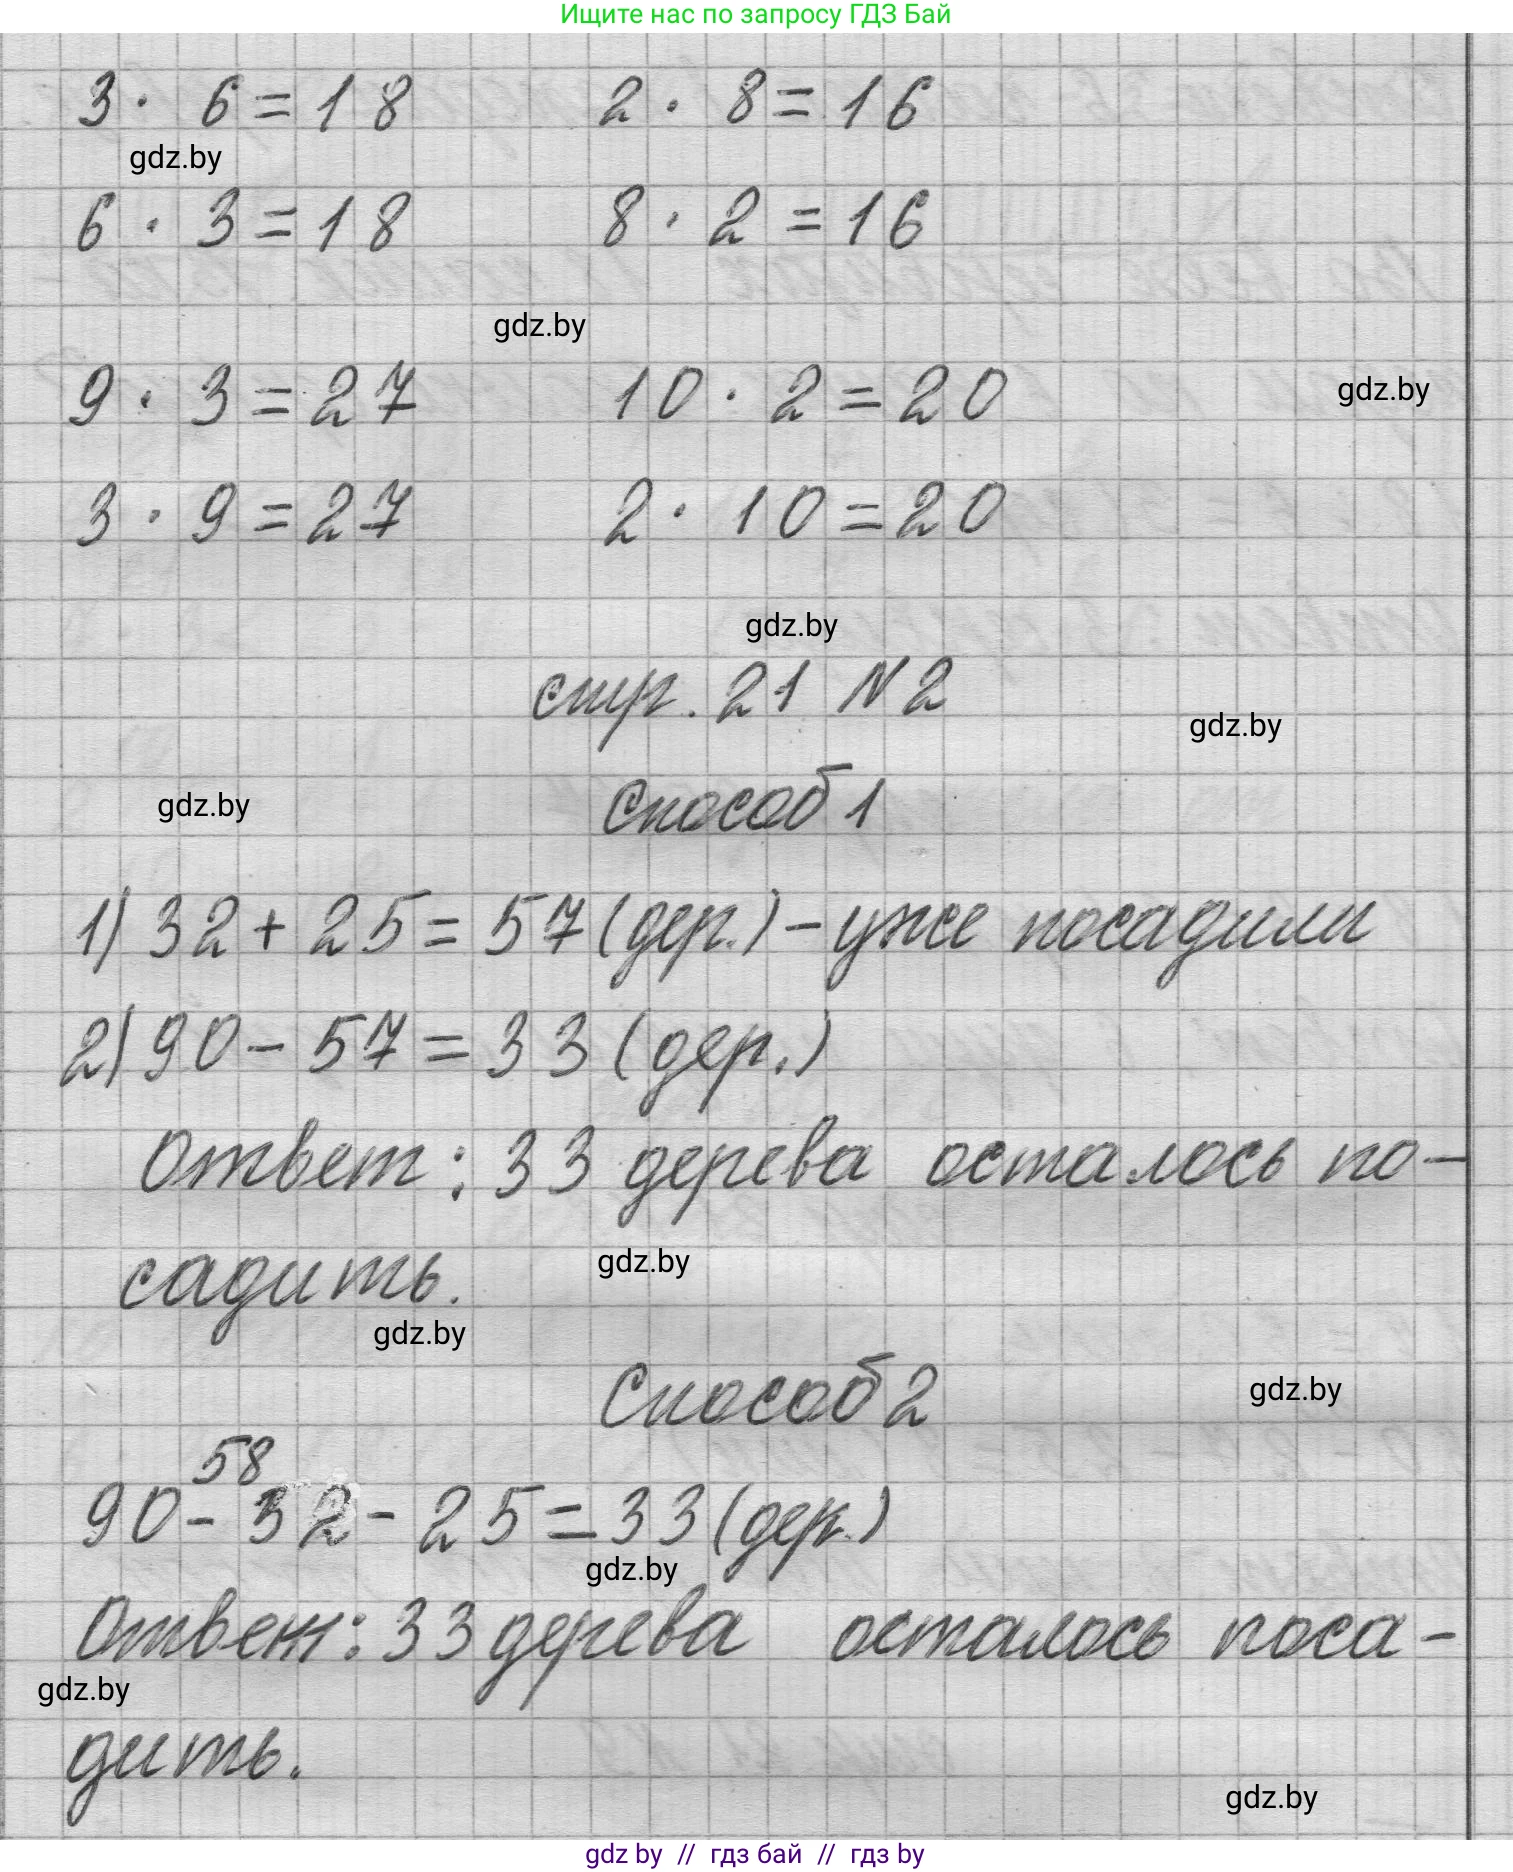 Ищите нас по запросу ГДЗ Бай
3 · 6 = 18 2 · 8 = 16
gdz.by
6 · 3 = 18 8 · 2 = 16
gdz.by
9 · 3 = 27 10 · 2 = 20
gdz.by
3 · 9 = 27 2 · 10 = 20
gdz.by
стр. 21 N2
gdz.by
Способ 1
gdz.by
1) 32 + 25 = 57 (дер.) – уже посадили
2) 90 – 57 = 33 (дер.)
Ответ: 33 дерева осталось по-
садить.
gdz.by
gdz.by
Способ 2
gdz.by
58
90 – 32 – 25 = 33 (дер.)
gdz.by
Ответ: 33 дерева осталось поса-
gdz.by
дить.
gdz.by
gdz by // гдз бай // гдз by